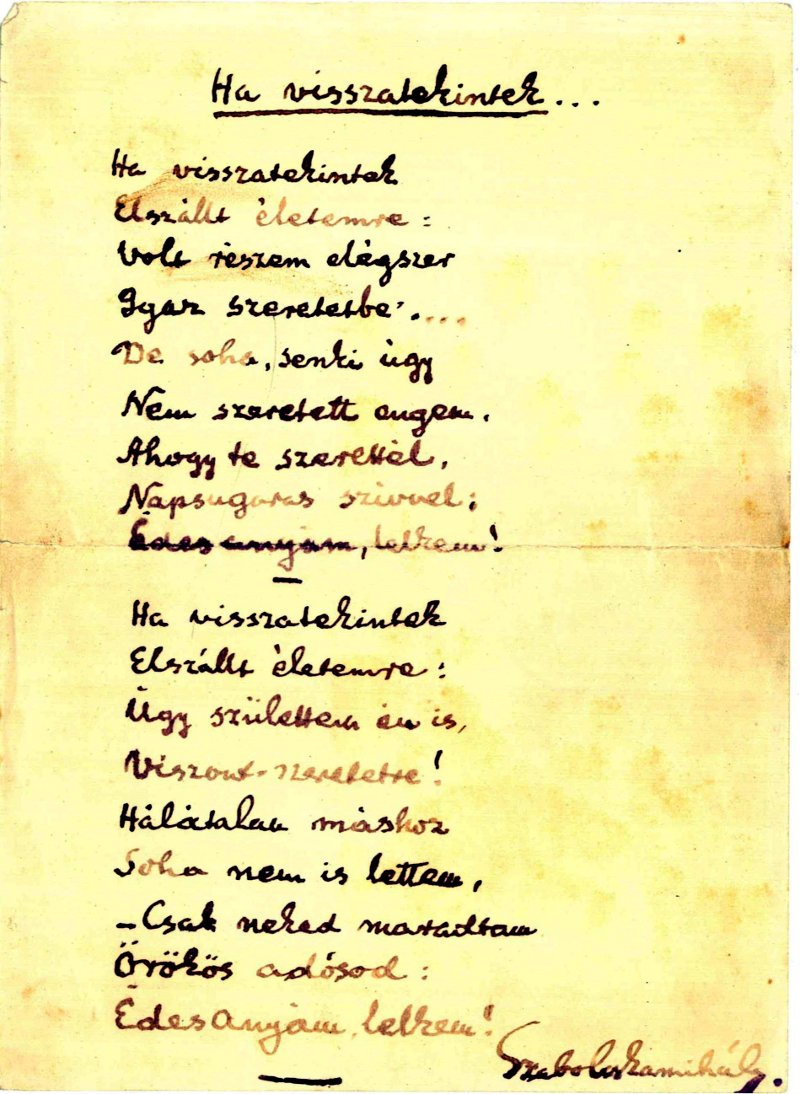 Ha visszatekintek...
Ha visszatekintek
Elszállt életemre:
Volt részem elégszer
Igaz szeretetbe'....
De soha, senki úgy
Nem szeretett engem,
Ahogy te szerettél,
Napsugaras szivvel;
Édes anyám, lelkem!
Ha visszatekintek
Elszállt életemre:
Úgy születtem én is,
Viszont-szeretetre!
Hálátalan máshoz
Soha nem is lettem,
–Csak neked maradtam
Örökös adósod:
Édesanyám, lelkem!
Szabolcskamihály.